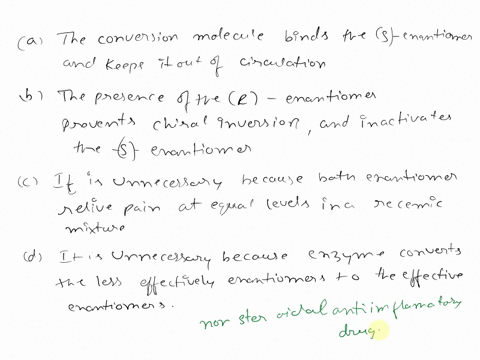 (a) The conversion molecule binds the (S)-enantiomer
and keeps it out of circulation
(b) The presence of the (R) - enantiomer
prevents chiral inversion, and inactivates
the -(S) enantiomer
(c) It is unnecessary because both enantiomer
relive pain at equal levels in a recemic
mixture
(d) It is unnecessary because enzyme converts
the less effectively enantiomers to the effective
enantiomers.
non steroidal antiinflamatory
drug.